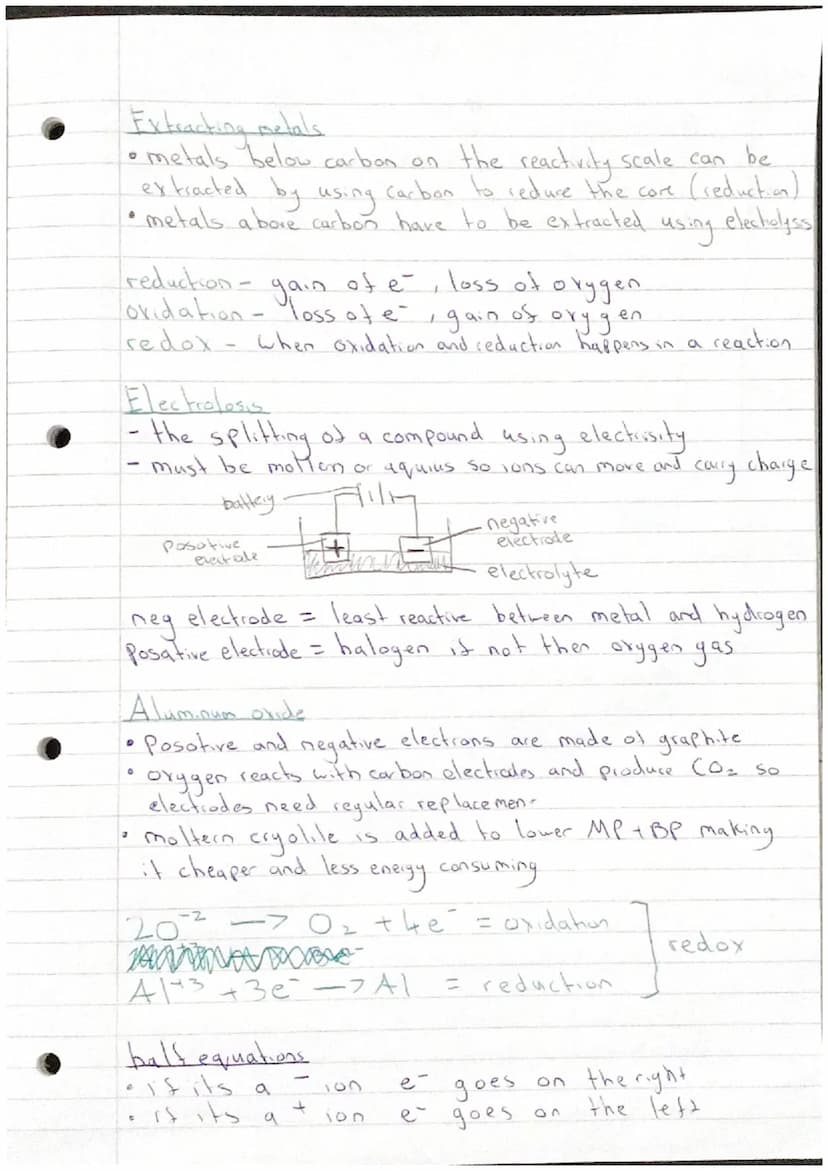 Extracting metals
• metals below carbon on the reactivity scale can be
extracted by using carbon to reduce the core (reduction)
• metals above carbon have to be extracted using electrolyss
reduction - gain of e⁻, loss of oxygen
oxidation - loss of e⁻, gain of oxygen
redox - when oxidation and reduction happens in a reaction
Electrolosis
- the splitting of a compound using electrisity
- must be moltern or aquius so ions can move and carry charge
battery
negative
electrode
posotive
electrode
+
-
electrolyte
neg electrode = least reactive between metal and hydrogen
Posative electrode = halogen if not then oxygen gas
Aluminum oxide
• Posotive and negative electrons are made of graphite
• oxygen reacts with carbon electrodes and produce CO₂ so
electrodes need regular replacement
• moltern cryolile is added to lower MP + BP making
it cheaper and less energy consuming
2O⁻² —> O₂ + 4e⁻ = oxidation
redox
Al⁺³ + 3e⁻ —> Al = reduction
half equations
• if its a ⁻ ion e⁻ goes on the right
• if its a ⁺ ion e⁻ goes on the left